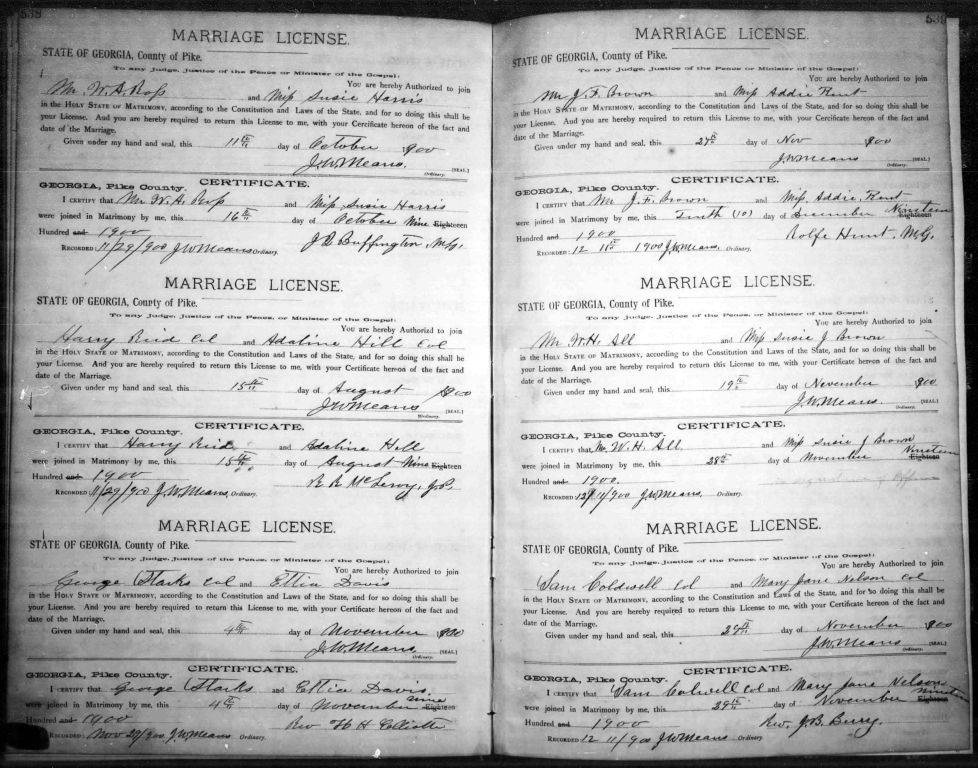 538
MARRIAGE LICENSE.
STATE OF GEORGIA, County of Pike.
To any Judge, Justice of the Peace or Minister of the Gospel:
You are hereby Authorized to join
Mr. W. A. Ross and Miss Susie Harris
in the HOLY STATE OF MATRIMONY, according to the Constitution and Laws of the State, and for so doing this shall be
your License. And you are hereby required to return this License to me, with your Cercificate hereon of the fact and
date of the Marriage.
Given under my hand and seal, this 11th day of October 1900
J.W. Means. [SEAL.]
Ordinary.
CERTIFICATE.
GEORGIA, Pike County.
I CERTIFY that Mr W. A. Ross and Miss Susie Harris
were joined in Matrimony by me, this 16th day of October Nine Eighteen
Hundred and 1900
J. Buffington, M.G.
RECORDED 11/29/900 J.W. Means Ordinary.
MARRIAGE LICENSE.
STATE OF GEORGIA, County of Pike.
To any Judge, Justice of the Peace, or Minister of the Gospel:
You are hereby Authorized to join
Harry Reid Col and Adaline Hill Col
in the HOLY STATE OF MATRIMONY, according to the Constitution and Laws of the State, and for so doing this shall be
your License. And you are hereby required to return this License to me, with your Certificate hereon of the fact and
date of the Marriage.
Given under my hand and seal, this 15th day of August 1900
J.W. Means [SEAL.]
Ordinary.
CERTIFICATE.
GEORGIA, Pike County.
I CERTIFY that Harry Reid and Adaline Hill
were joined in Matrimony by me, this 15th day of August Nine Eighteen
Hundred and 1900
R. R. McLeroy, J.P.
RECORDED 11/29/900 J.W. Means, Ordinary.
MARRIAGE LICENSE.
STATE OF GEORGIA, County of Pike.
To any Judge, Justice of the Peace, or Minister of the Gospel:
You are hereby Authorized to join
George Starks Col and Ettica Davis
in the HOLY STATE OF MATRIMONY, according to the Constitution and Laws of the State, and for so doing this shall be
your License. And you are hereby required to return this License to me, with your Certificate hereon of the fact and
date of the Marriage.
Given under my hand and seal, this 4th day of November 1900
J.W. Means [SEAL.]
Ordinary.
CERTIFICATE.
GEORGIA, Pike County.
I CERTIFY that George Starks and Ettica Davis
were joined in Matrimony by me, this 4th day of November Nine Eighteen
Hundred and 1900
Rev H H
RECORDED Nov 29/900 J.W. Means Ordinary.
539
MARRIAGE LICENSE.
STATE OF GEORGIA, County of Pike.
To any Judge, Justice of the Peace or Minister of the Gospel:
You are hereby Authorized to join
Mr J. F. Brown and Miss Addie Hunt
in the HOLY STATE OF MATRIMONY, according to the Constitution and Laws of the State, and for so doing this shall be
your License. And you are hereby required to return this License to me, with your Certificate hereon of the fact and
date of the Marriage.
Given under my hand and seal, this 27th day of Nov 1900
J.W. Means [SEAL.]
Ordinary.
CERTIFICATE.
GEORGIA, Pike County.
I CERTIFY that Mr J. F. Brown and Miss Addie Hunt
were joined in Matrimony by me, this Tenth (10) day of December Nineteen Eighteen
Hundred and 1900
Rolfe Hunt, M.G.
RECORDED: 12 11th 1900 J.W. Means. Ordinary.
MARRIAGE LICENSE.
STATE OF GEORGIA, County of Pike.
To any Judge, Justice of the Peace, or Minister of the Gospel:
You are hereby Authorized to join
Mr. W. H. All and Miss Susie J Brown
in the HOLY STATE OF MATRIMONY, according to the Constitution and Laws of the State, and for so doing this shall be
your License. And you are hereby required to return this License to me, with your Certificate hereon of the fact and
date of the Marriage.
Given under my hand and seal, this 19th day of November 1900
J.W. Means. [SEAL.]
Ordinary.
CERTIFICATE.
GEORGIA, Pike County.
I CERTIFY that Mr. W. H. All and Miss Susie J Brown
were joined in Matrimony by me, this 28th day of November Nineteen Eighteen
Hundred and 1900.
RECORDED 12/11/900 J.W. Means. Ordinary.
MARRIAGE LICENSE.
STATE OF GEORGIA, County of Pike.
To any Judge, Justice of the Peace, or Minister of the Gospel:
You are hereby Authorized to join
Sam Coldwell Col and Mary Jane Nelson Col
in the HOLY STATE OF MATRIMONY, according to the Constitution and Laws of the State, and for so doing this shall be
your License. And you are hereby required to return this License to me, with your Certificate hereon of the fact and
date of the Marriage.
Given under my hand and seal, this 29th day of November 1900
J.W. Means [SEAL.]
Ordinary.
CERTIFICATE.
GEORGIA, Pike County.
I CERTIFY that Sam Colwell Col and Mary Jane Nelson
were joined in Matrimony by me, this 29th day of November Nineteen Eighteen
Hundred and 1900
Rev. J. B. Berry.
RECORDED 12 11/900 J.W. Means Ordinary.